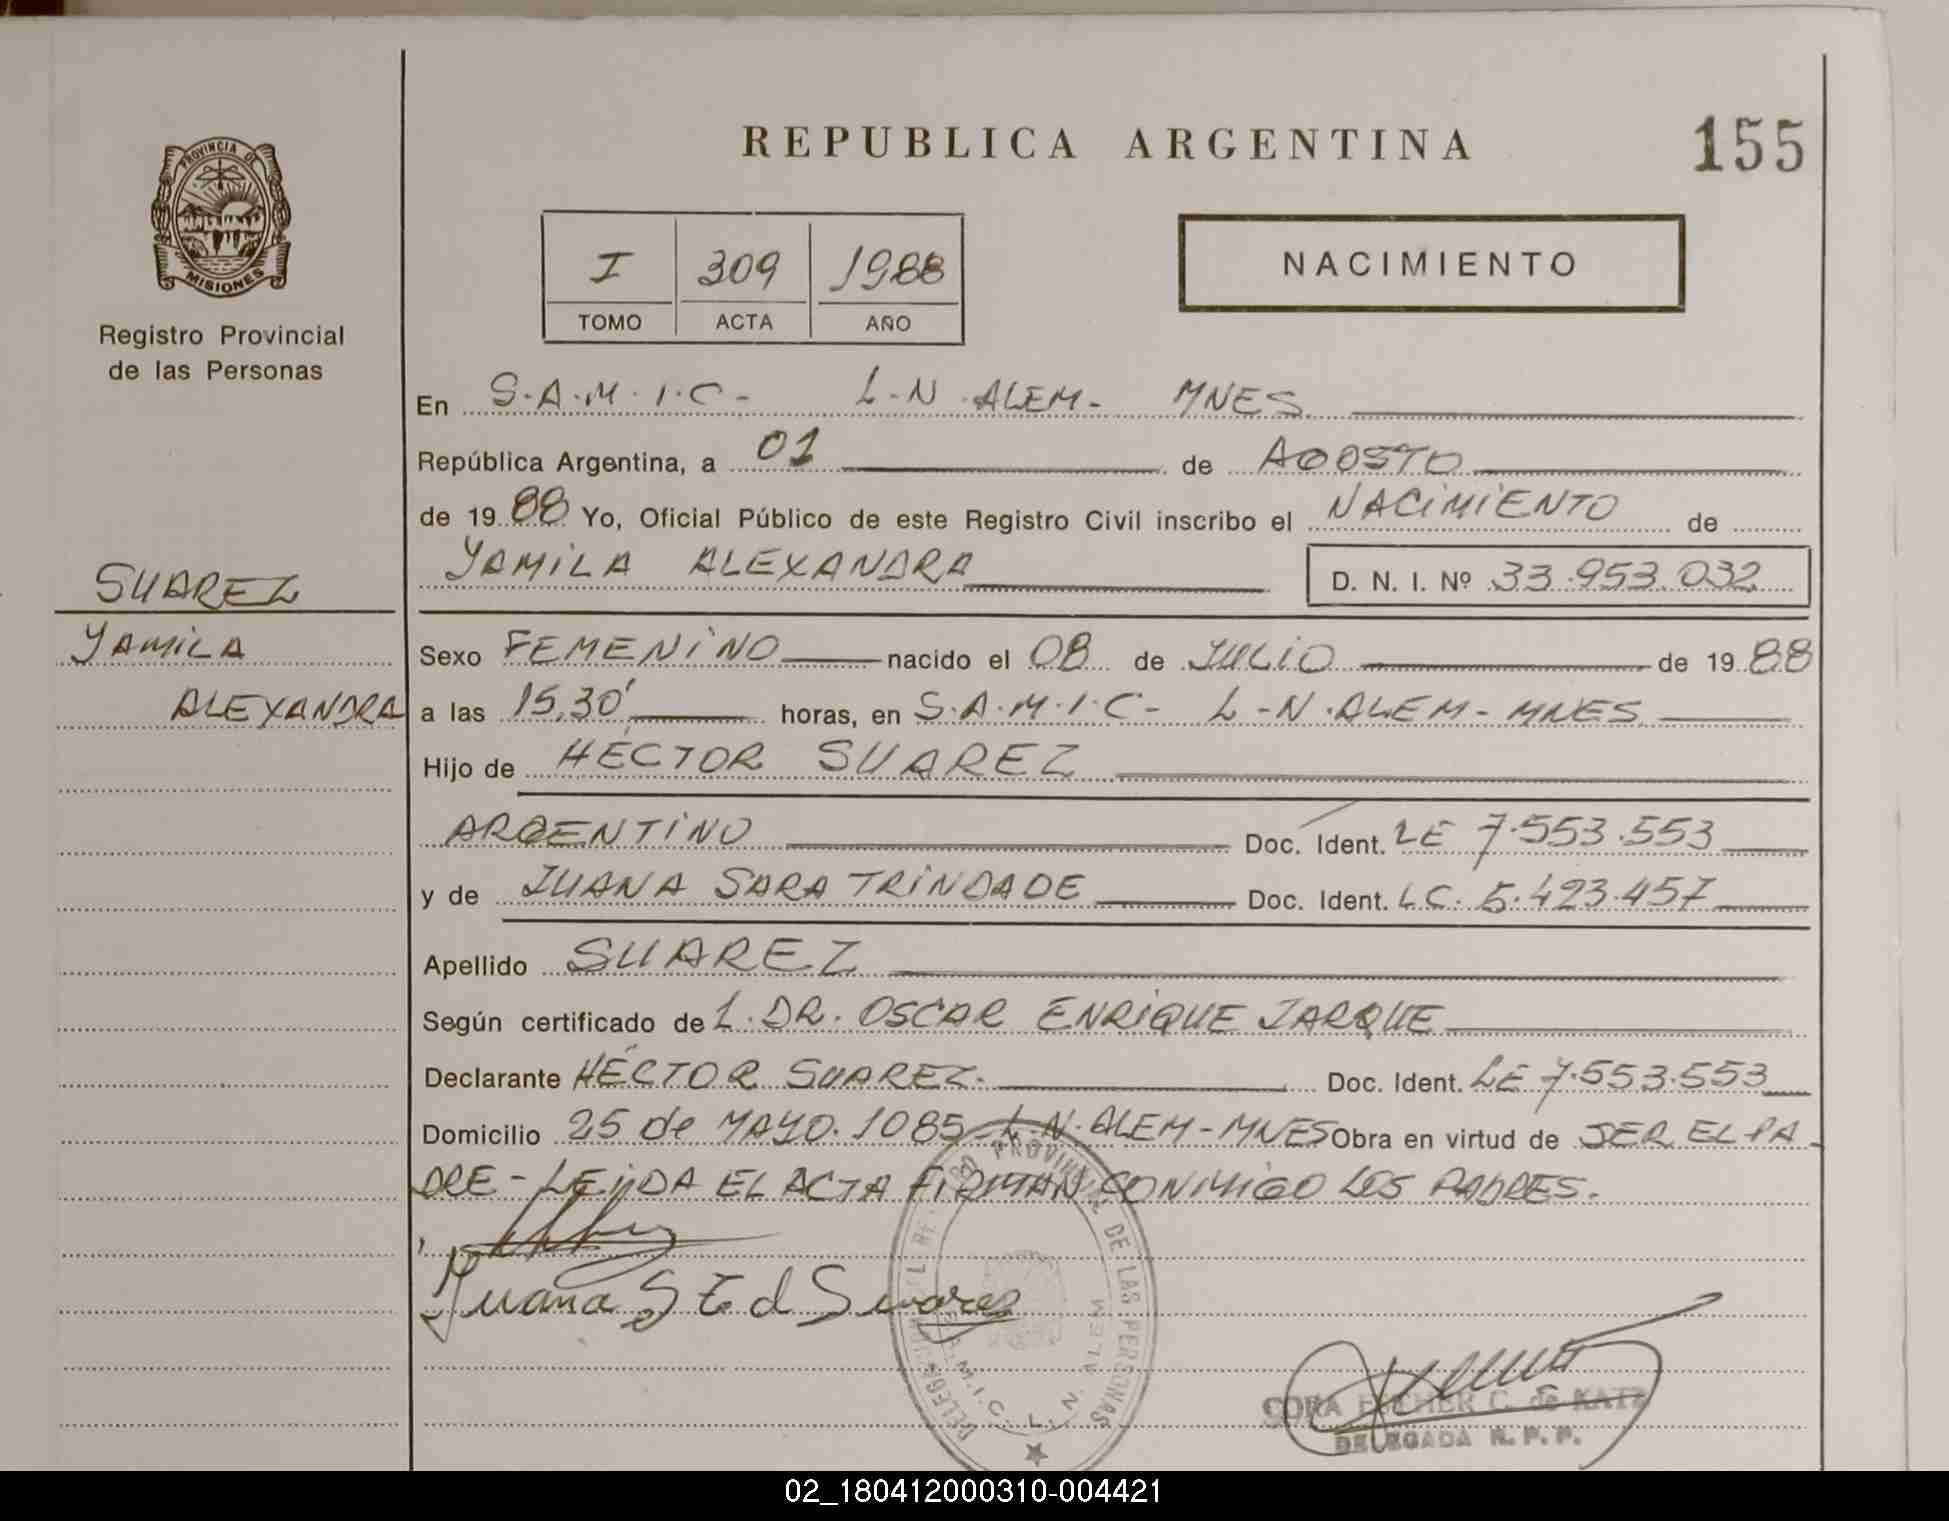 REPUBLICA ARGENTINA
155
PROVINCIA DE
MISIONES
Registro Provincial
de las Personas
I 309 1988
TOMO ACTA AÑO
NACIMIENTO
En S.A.M.I.C- L-N.ALEM- MNES.
República Argentina, a 01 de AGOSTO
de 1988 Yo, Oficial Público de este Registro Civil inscribo el NACIMIENTO de
YAMILA ALEXANDRA D. N. I. Nº 33.953.032
SUAREZ
YAMILA
ALEXANDRA
Sexo FEMENINO nacido el 08 de JULIO de 1988
a las 15,30' horas, en S.A.M.I.C- L-N.ALEM-MNES
Hijo de HECTOR SUAREZ
ARGENTINO Doc. Ident. LE 7.553.553
y de JUANA SARA TRINDADE Doc. Ident. L.C. 5.423.457
Apellido SUAREZ
Según certificado de L. DR. OSCAR ENRIQUE JARQUE
Declarante HECTOR SUAREZ. Doc. Ident. LE 7.553.553
Domicilio 25 de MAYO. 1085-L-N.ALEM-MNES Obra en virtud de SER EL PA-
DRE-LEIDA EL ACTA FIRMAN CONMIGO LOS PADRES.
Juana S T. d Suarez
PROVINCIAL DE LAS PERSONAS
S.A.M.I.C. L. N. ALEM
CORA ESTHER C. de KATZ
DELEGADA R. P. P.
02_180412000310-004421